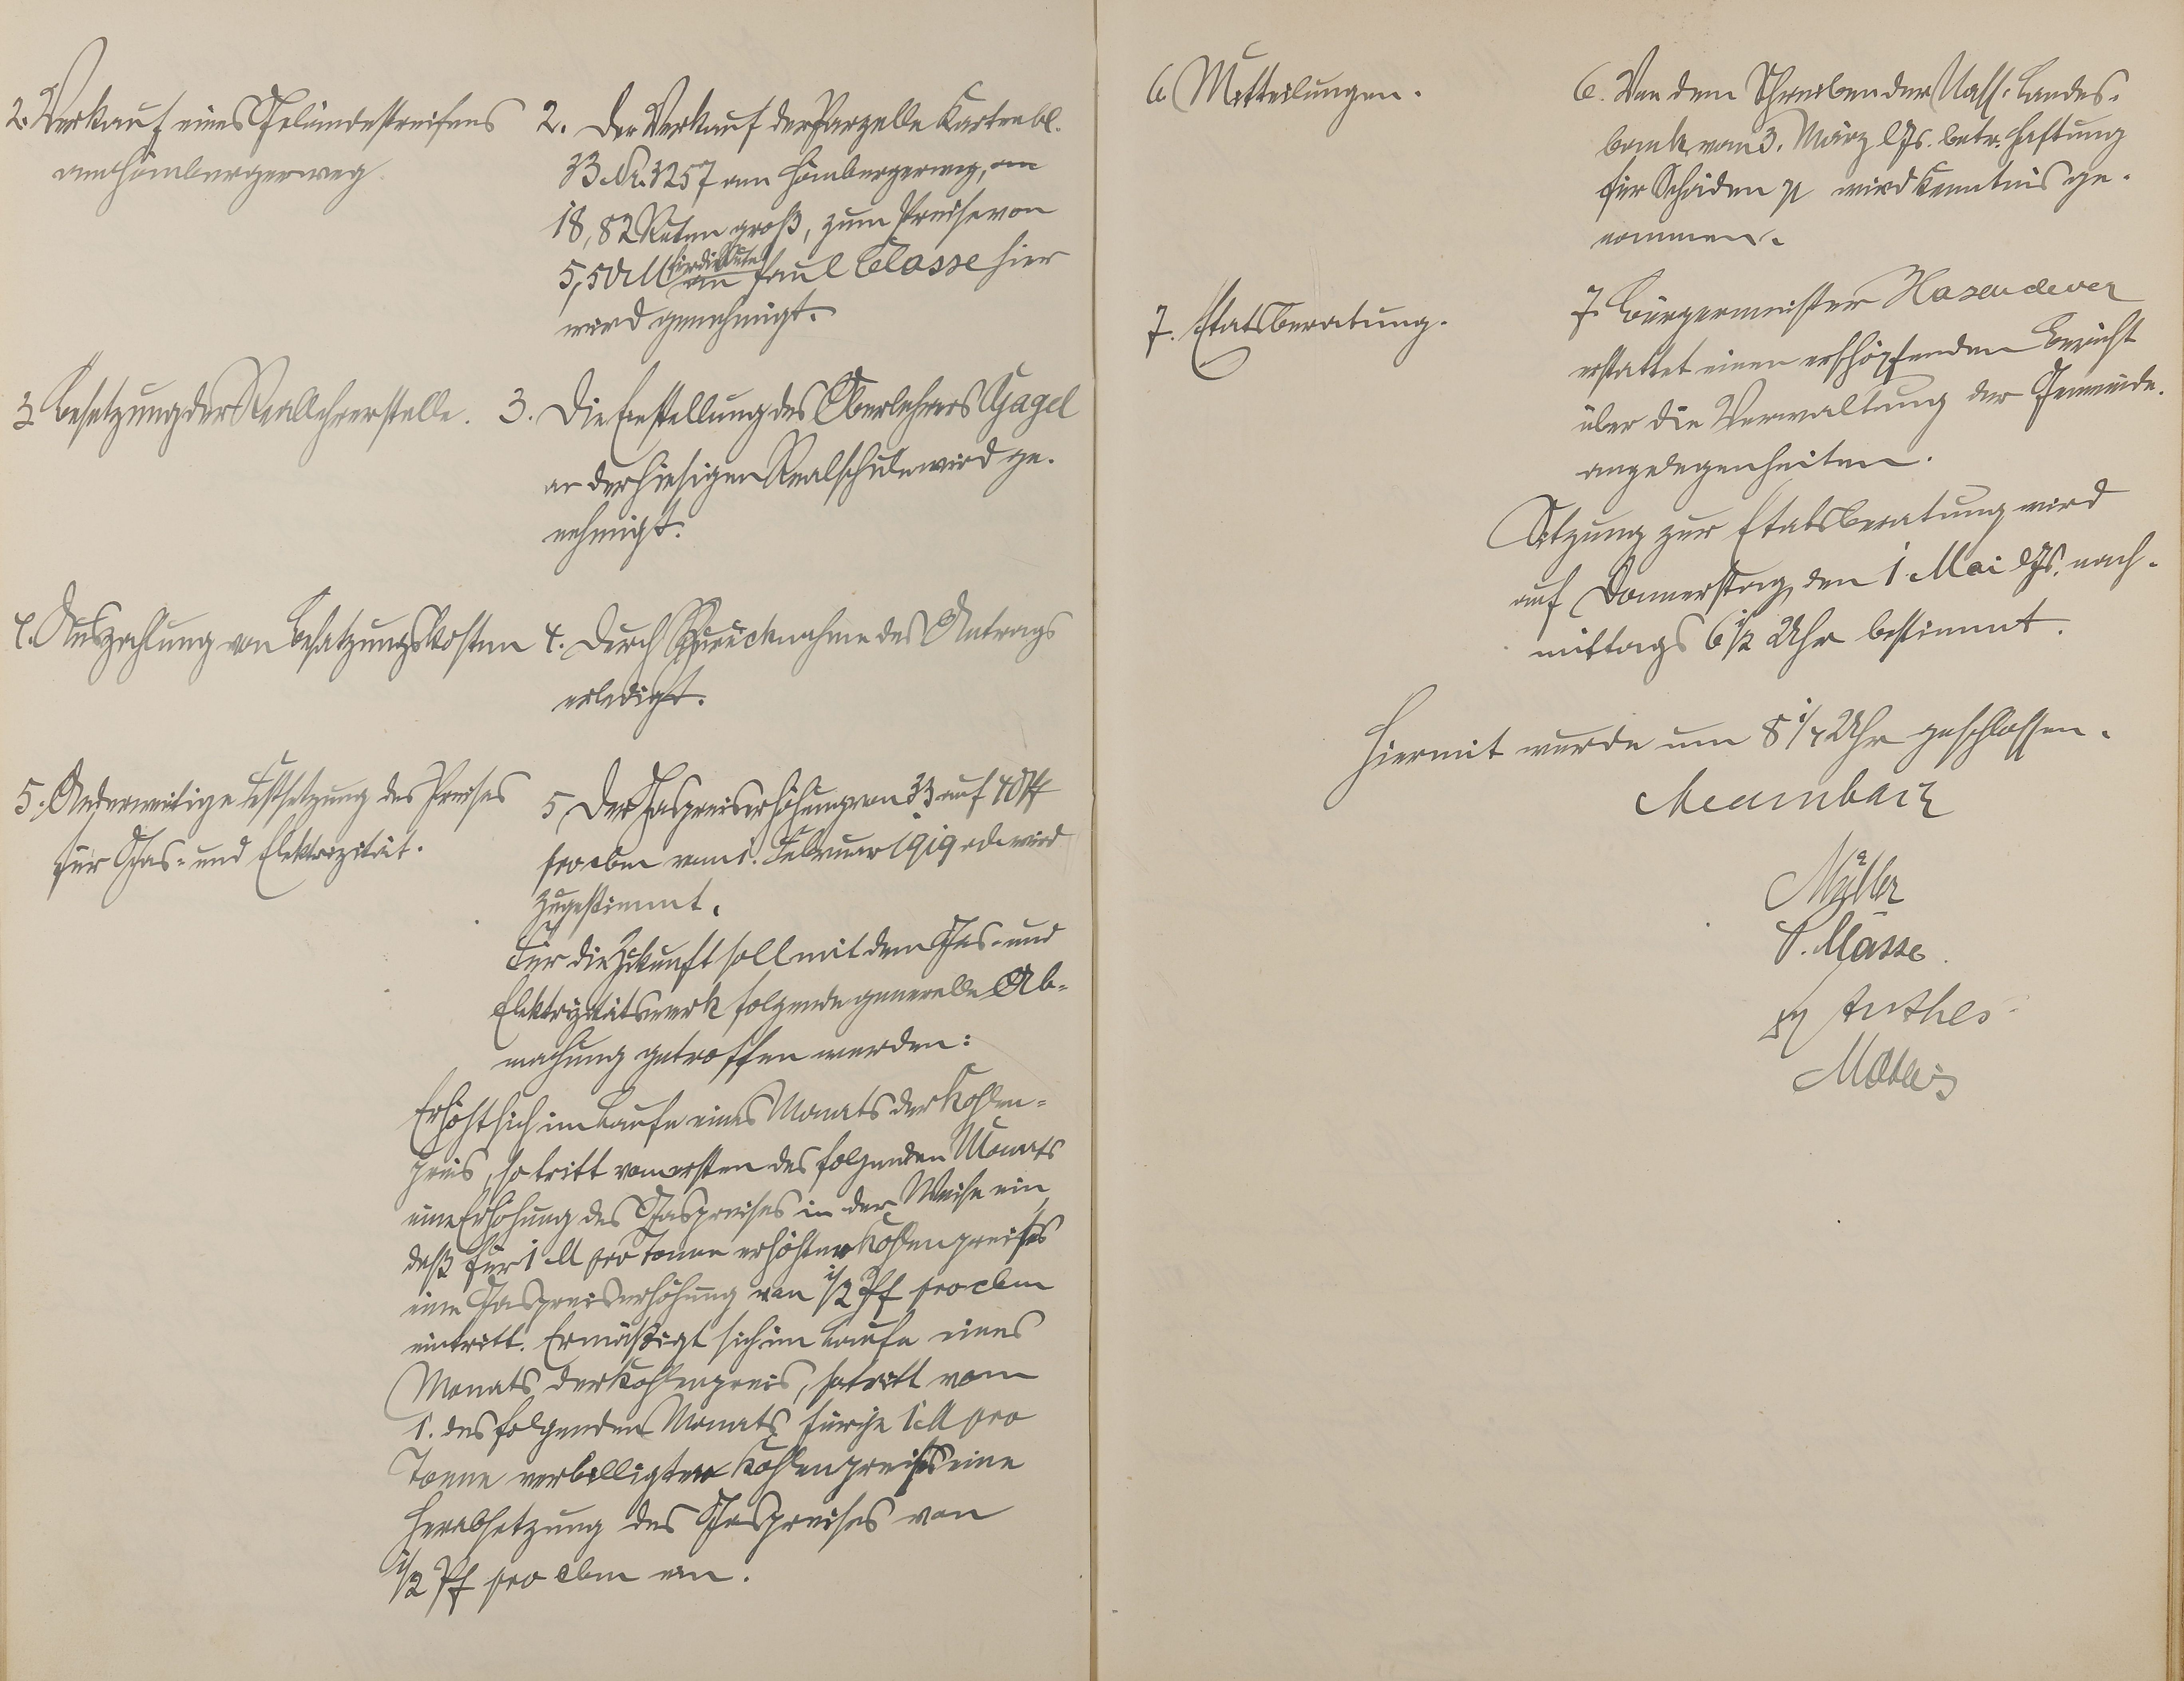 2. Verkauf eines Geländestreifens
am Hömbergerweg.
2. Der Verkauf der Parzelle Kartenbl.
33 Nr. 3257 am Hömbergerweg, von
18,82 Ruten groß, zum Preise von
5,50 M für die Rute an Paul Classe hier
wird genehmigt.
3. Besetzung der Reallehrerstelle.
3. Die Einstellung des Oberlehrers Gagel
an der hiesigen Realschule wird ge-
nehmigt.
4. Auszahlung von Besatzungskosten
4. Durch Zurücknahme des Antrags
erledigt.
5. Anderweitige Festsetzung des Preises
für Gas- und Elektrizität.
5. Der Gaspreiserhöhung von 33 auf 40 Pf
pro cbm vom 1. Februar 1919 ab wird
zugestimmt.
Für die Zukunft soll mit dem Gas- und
Elektrizitätswerk folgende generelle Ab-
machung getroffen werden:
Erhöht sich im Laufe eines Monats der Kohlen-
preis, so tritt vom ersten des folgenden Monats
eine Erhöhung des Gaspreises in der Weise ein,
daß für 1 M pro Tonne erhöhten Kohlenpreises
eine Gaspreiserhöhung von 1/2 Pf pro cbm
eintritt. Ermäßigt sich im Laufe eines
Monats der Kohlenpreis, so tritt vom
1. des folgenden Monats für je 1 M pro
Tonne verbilligten Kohlenpreises eine
Herabsetzung des Gaspreises von
1/2 Pf pro cbm ein.
6. Mitteilungen.
6. Von dem Schreiben der Nass. Landes-
bank vom 3. März ds. Js. betr. Haftung
für Schäden pp wird Kenntnis ge-
nommen.
7. Etatsberatung.
7. Bürgermeister Hasenclever
erstattet einen erschöpfenden Bericht
über die Verwaltung der Gemeinde-
angelegenheiten.
Sitzung zur Etatsberatung wird
auf Donnerstag, den 1. Mai ds. Js. nach-
mittags 6 1/2 Uhr bestimmt.
Hiermit wurde um 8 1/4 Uhr geschlossen.
Müller
Anthes